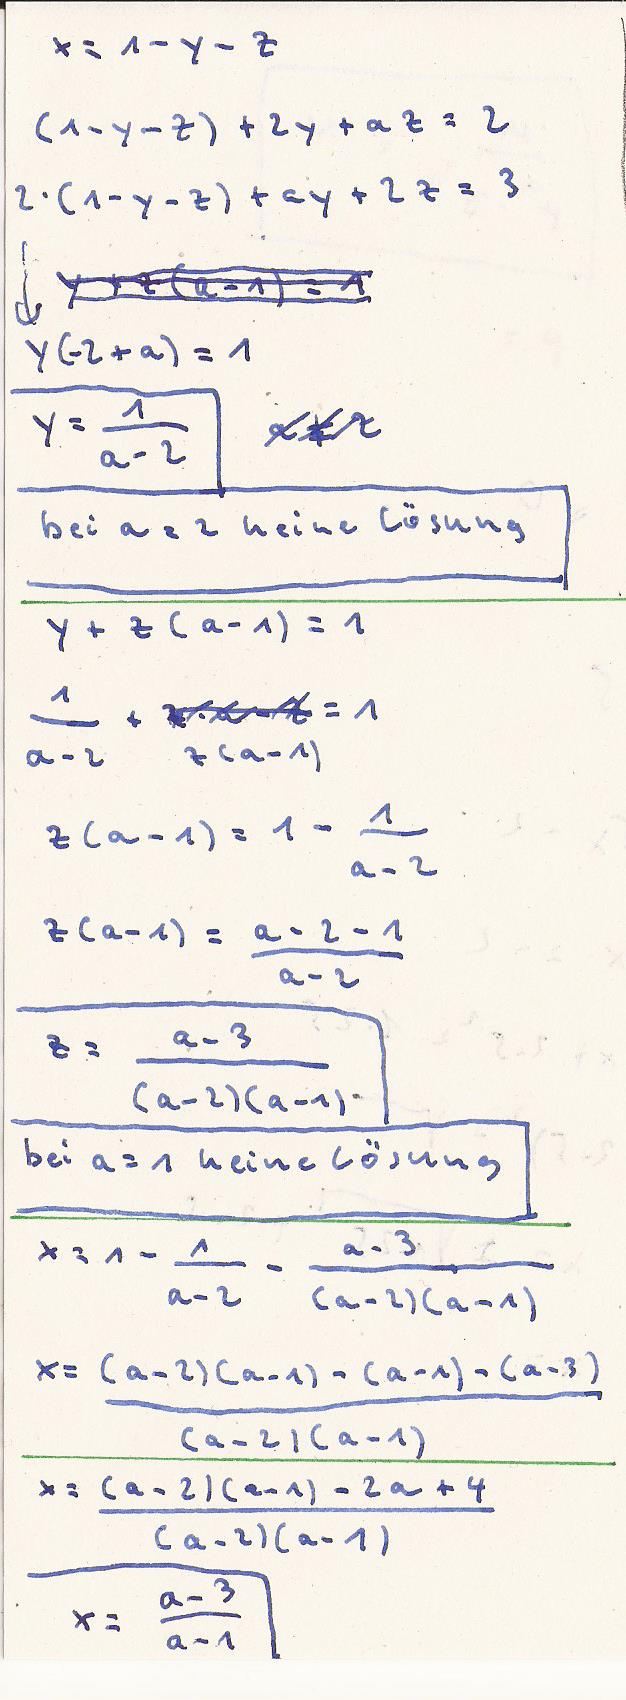 x = 1 - y - z
(1 - y - z) + 2y + az = 2
2·(1 - y - z) + ay + 2z = 3
y + z(a - 1) = 1
y(-2 + a) = 1
y = 1/(a - 2) a ≠ 2
bei a = 2 keine Lösung
y + z(a - 1) = 1
1/(a - 2) + z·a - z = 1
z(a - 1)
z(a - 1) = 1 - 1/(a - 2)
z(a - 1) = (a - 2 - 1)/(a - 2)
z = (a - 3)/((a - 2)(a - 1))
bei a = 1 keine Lösung
x = 1 - 1/(a - 2) - (a - 3)/((a - 2)(a - 1))
x = ((a - 2)(a - 1) - (a - 1) - (a - 3))/((a - 2)(a - 1))
x = ((a - 2)(a - 1) - 2a + 4)/((a - 2)(a - 1))
x = (a - 3)/(a - 1)